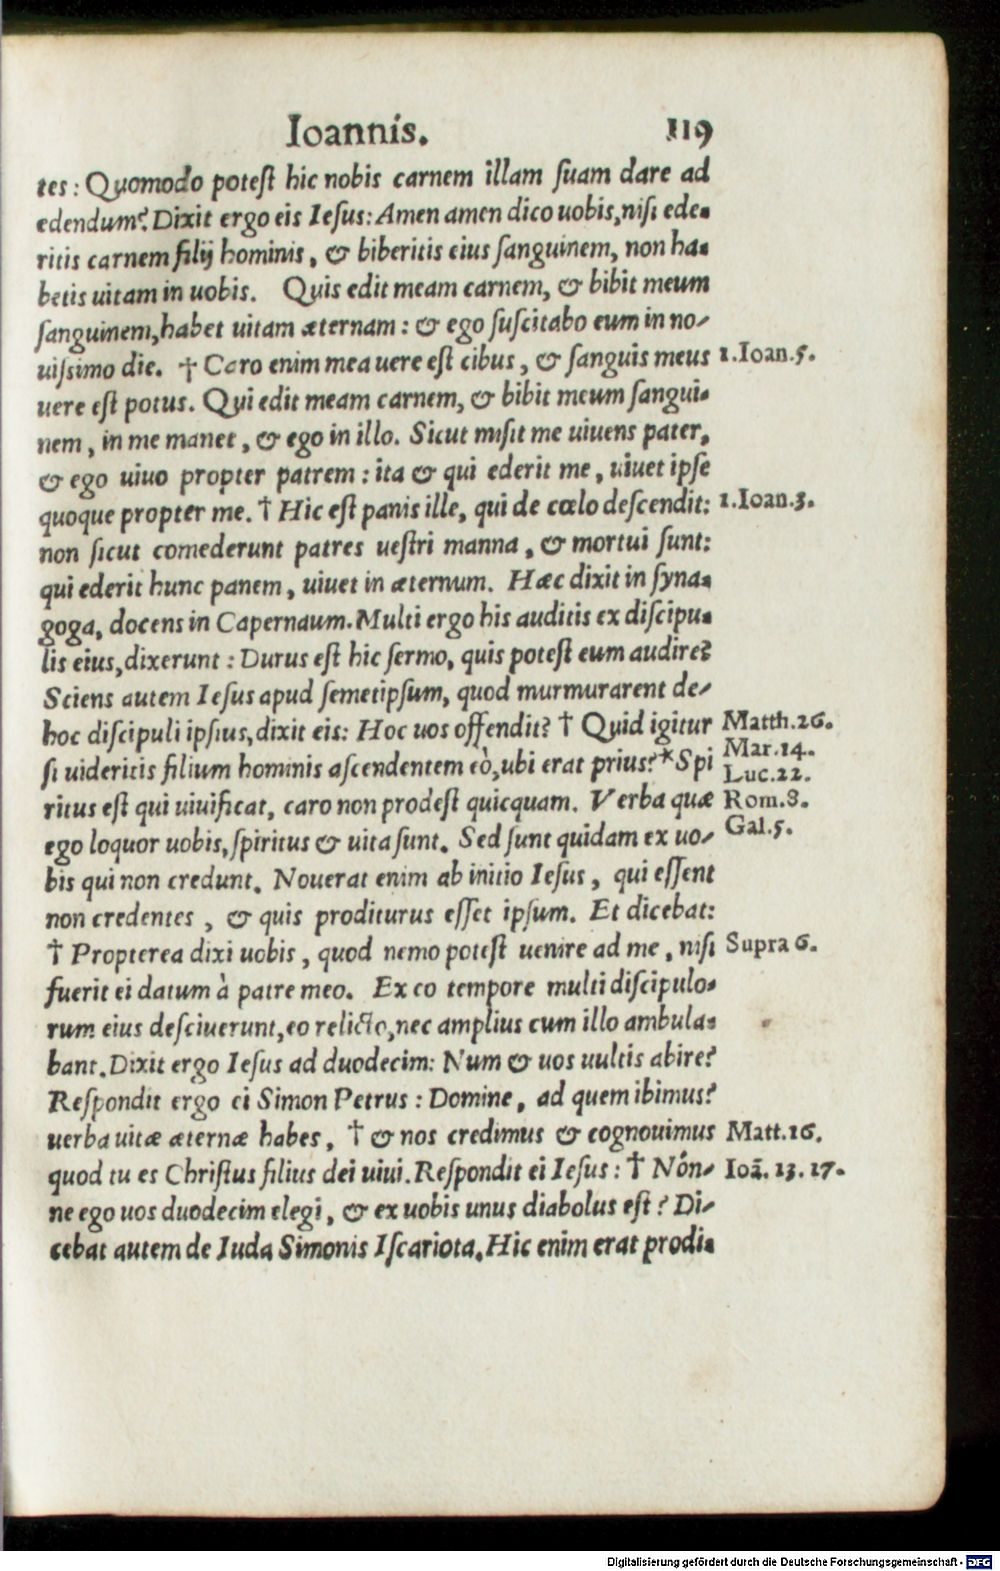 Ioannis. 119
tes: Quomodo potest hic nobis carnem illam suam dare ad
edendum? Dixit ergo eis Iesus: Amen amen dico uobis, nisi ede-
ritis carnem filij hominis, & biberitis eius sanguinem, non ha-
betis uitam in uobis. Quis edit meam carnem, & bibit meum
sanguinem, habet uitam æternam: & ego suscitabo eum in no-
uissimo die. † Caro enim mea uere est cibus, & sanguis meus 1.Ioan.5.
uere est potus. Qui edit meam carnem, & bibit meum sangui-
nem, in me manet, & ego in illo. Sicut misit me uiuens pater,
& ego uiuo propter patrem: ita & qui ederit me, uiuet ipse
quoque propter me. † Hic est panis ille, qui de cœlo descendit: 1.Ioan.3.
non sicut comederunt patres uestri manna, & mortui sunt:
qui ederit hunc panem, uiuet in æternum. Hæc dixit in syna-
goga, docens in Capernaum. Multi ergo his auditis ex discipu-
lis eius, dixerunt: Durus est hic sermo, quis potest eum audire?
Sciens autem Iesus apud semetipsum, quod murmurarent de-
hoc discipuli ipsius, dixit eis: Hoc uos offendit? † Quid igitur Matth.26.
si uideritis filium hominis ascendentem eò, ubi erat prius? * Spi Mar.14.
Luc.22.
ritus est qui uiuificat, caro non prodest quicquam. Verba quæ Rom.8.
ego loquor uobis, spiritus & uita sunt. Sed sunt quidam ex uo- Gal.5.
bis qui non credunt. Nouerat enim ab initio Iesus, qui essent
non credentes, & quis proditurus esset ipsum. Et dicebat:
† Propterea dixi uobis, quod nemo potest uenire ad me, nisi Supra 6.
fuerit ei datum à patre meo. Ex eo tempore multi discipulo-
rum eius desciuerunt, eo relicto, nec amplius cum illo ambula-
bant. Dixit ergo Iesus ad duodecim: Num & uos uultis abire?
Respondit ergo ei Simon Petrus: Domine, ad quem ibimus?
uerba uitæ æternæ habes, † & nos credimus & cognouimus Matt.16.
quod tu es Christus filius dei uiui. Respondit ei Iesus: † Nón- Ioā. 13. 17.
ne ego uos duodecim elegi, & ex uobis unus diabolus est? Di-
cebat autem de Iuda Simonis Iscariota. Hic enim erat prodi-
Digitalisierung gefördert durch die Deutsche Forschungsgemeinschaft - DFG